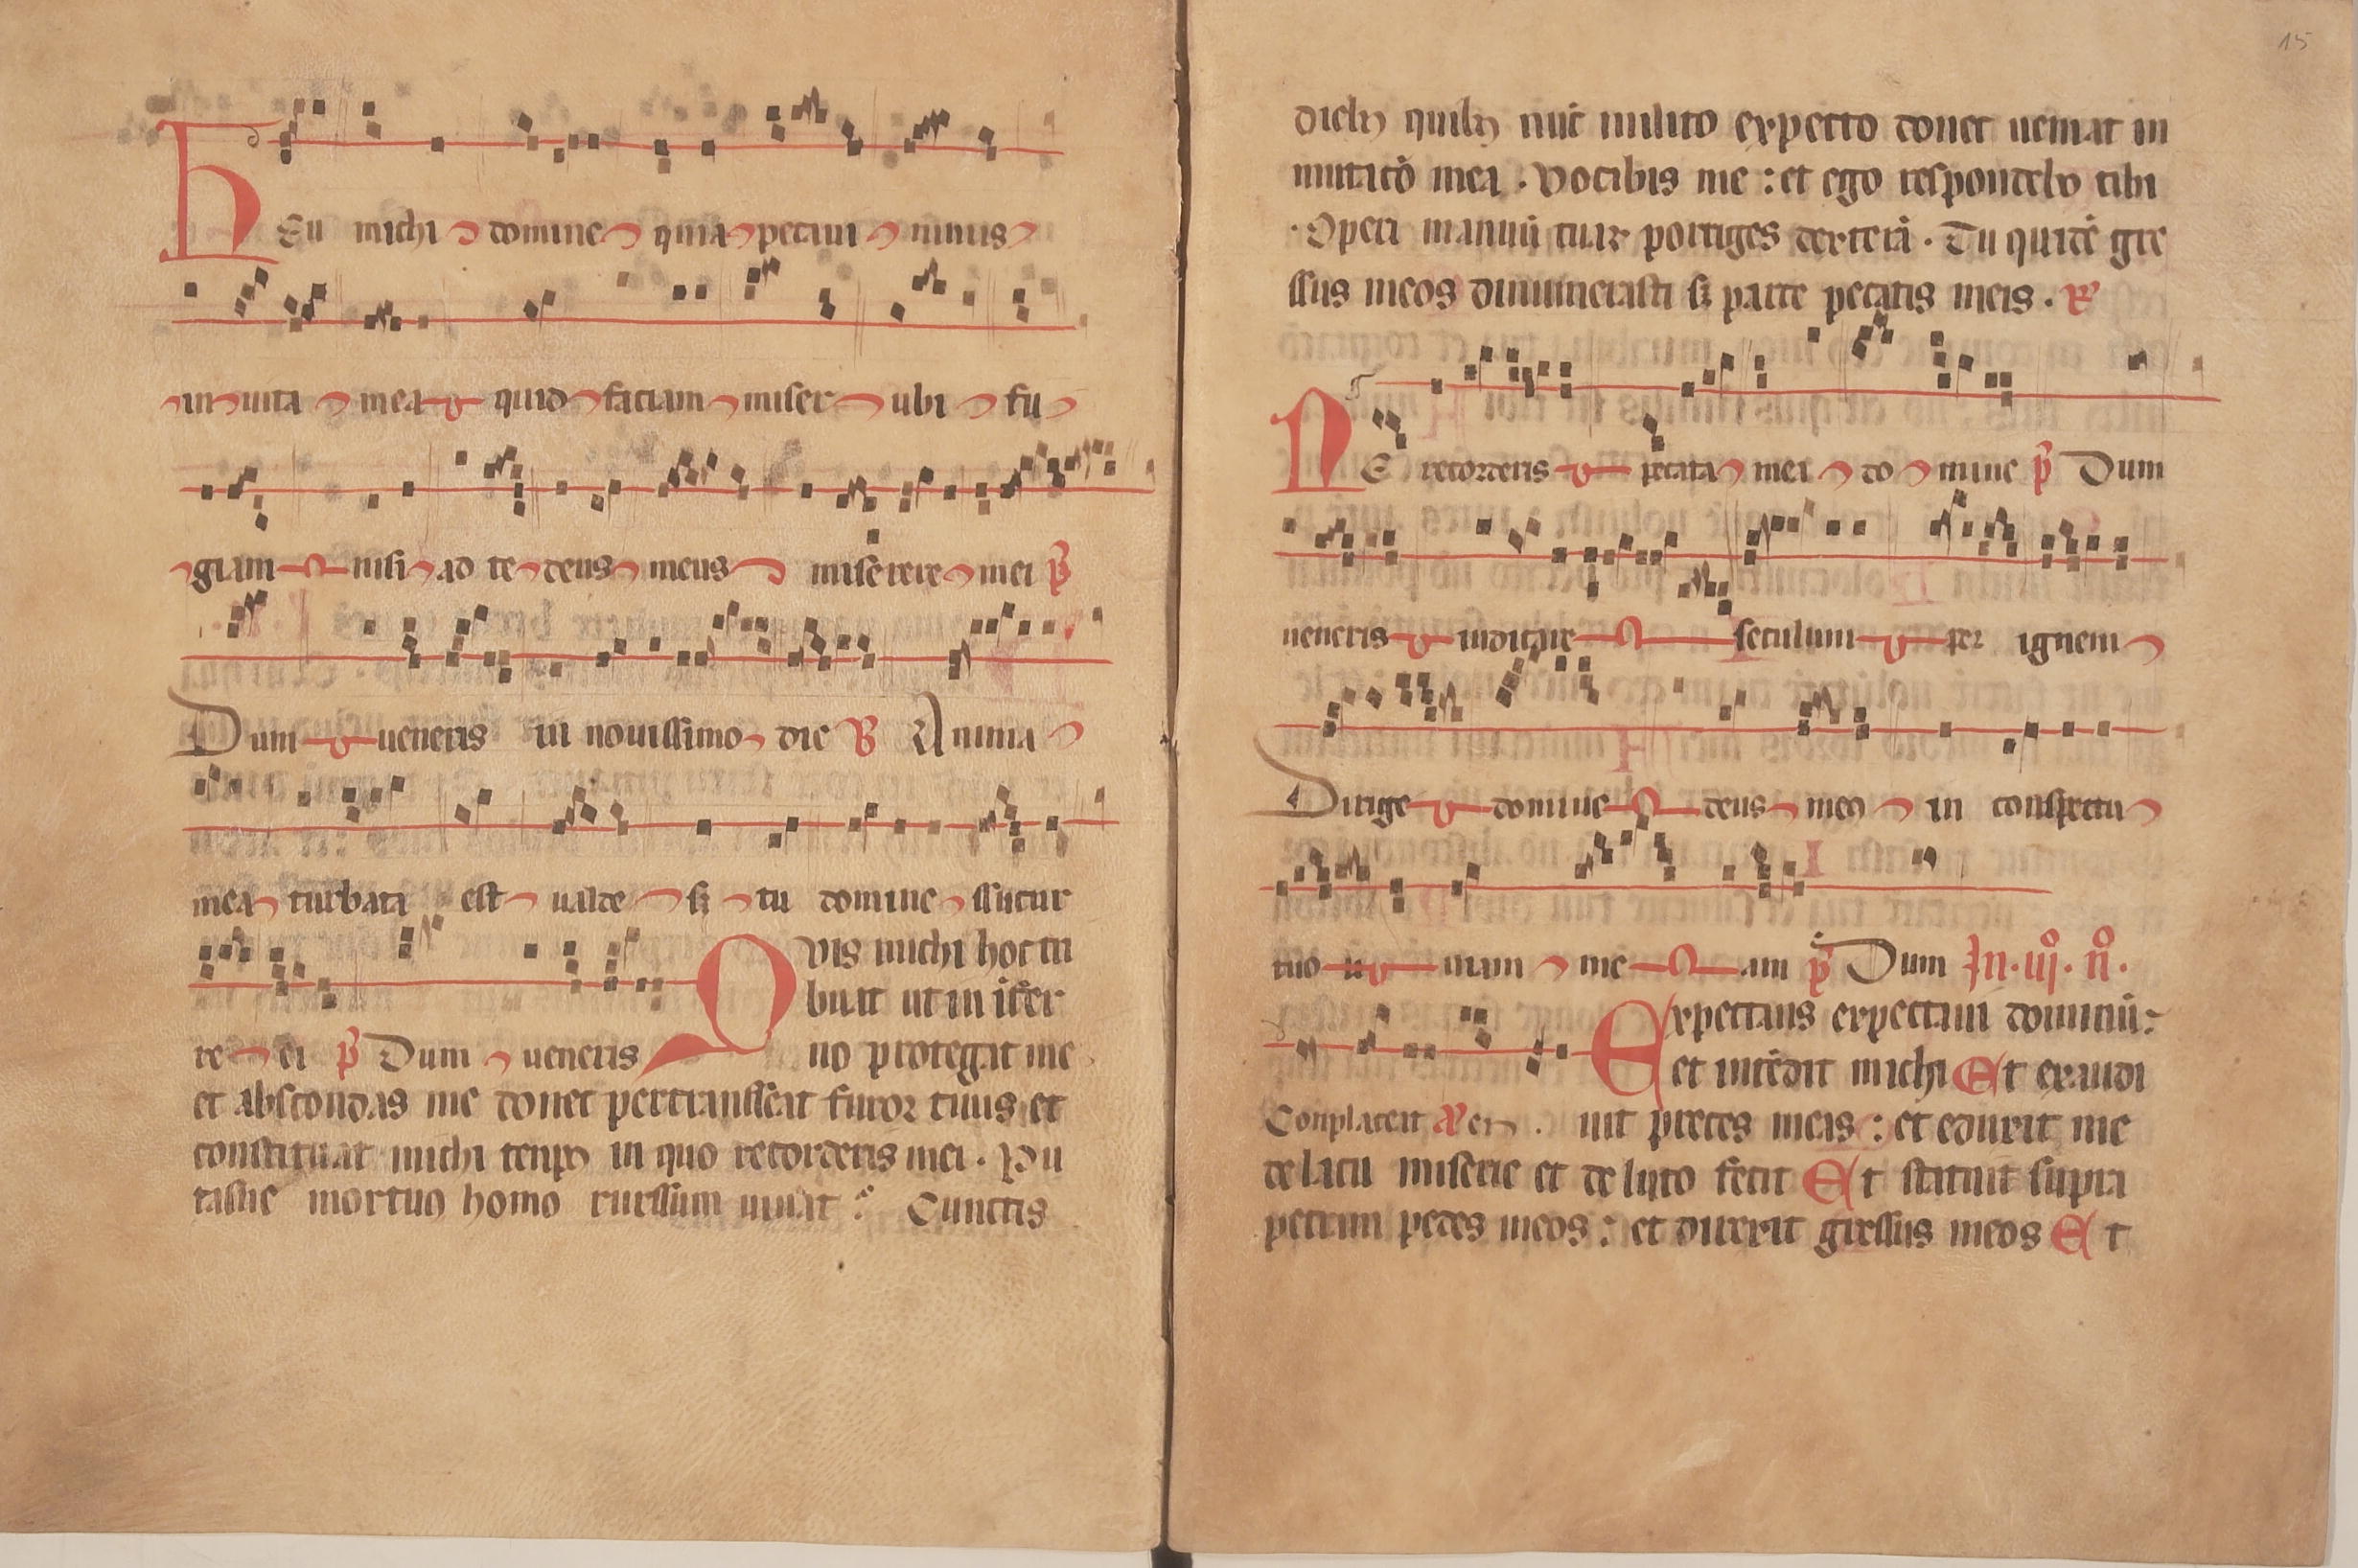 Heu michi domine quia pecaui nimis
in uita mea quid faciam miser ubi fu
giam nisi ad te deus meus miserere mei p̃
Dum ueneris in nouissimo die ꝟ Anima
mea turbata est ualde sꝫ tu domine sucur
re ei p̃ Dum ueneris Quis michi hoc tri
buat ut in ifer
no protegat me
et abscondas me donec pertranseat furor tuus et
constituat michi tenpꝰ in quo recorderis mei. Pu
tasne mortuꝰ homo rurssum uiuat : Cunctis
diebꝰ quibꝰ nũc milito expecto donec ueniat in
mutatõ mea. Vocabis me : et ego respondebo tibi
. Operi manuũ tuaꝝ porriges dexterã. Tu quidẽ gre
ssus meos dinumerasti sꝫ parce pecatis meis. ℟
Ne recorderis pecata mea domine p̃ Dum
ueneris iudicare seculum per ignem
Dirige domine deus meꝰ in conspectu
tuo uiam meam p̃ Dum In. iij̊. n̊.
Expectans expectaui dominũ:
et intẽdit michi Et exaudi
Conplaceat uit preces meas : et eduxit me
de lacu miserie et de luto fecit Et statuit supra
petram pedes meos : et direxit gressus meos Et
15